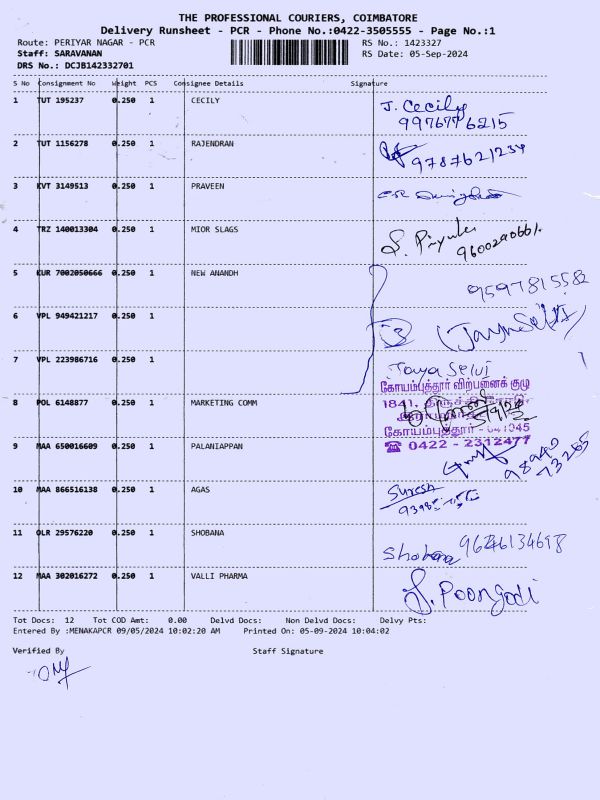 THE PROFESSIONAL COURIERS, COIMBATORE
Delivery Runsheet - PCR - Phone No.:0422-3505555 - Page No.:1
Route: PERIYAR NAGAR - PCR
RS No.: 1423327
Staff: SARAVANAN
RS Date: 05-Sep-2024
DRS No.: DCJB142332701
S No Consignment No Weight PCS Consignee Details Signature
1 TUT 195237 0.250 1 CECILY J. Cecily
9976776215
2 TUT 1156278 0.250 1 RAJENDRAN 9787621234
3 KVT 3149513 0.250 1 PRAVEEN
4 TRZ 140013304 0.250 1 MIOR SLAGS
9600290661
5 KUR 7002050666 0.250 1 NEW ANANDH 9597815582
6 VPL 949421217 0.250 1
7 VPL 223986716 0.250 1 Jaya Selvi
கோயம்புத்தூர் விற்பனைக் குழு
8 POL 6148877 0.250 1 MARKETING COMM 1841,
கோயம்புத்தூர் - 641045
☎ 0422 - 2312477
9 MAA 650016609 0.250 1 PALANIAPPAN
10 MAA 866516138 0.250 1 AGAS Suresh
11 OLR 29576220 0.250 1 SHOBANA Shobana
12 MAA 302016272 0.250 1 VALLI PHARMA J. Poongodi
Tot Docs: 12 Tot COD Amt: 0.00 Delvd Docs: Non Delvd Docs: Delvy Pts:
Entered By :MENAKAPCR 09/05/2024 10:02:20 AM Printed On: 05-09-2024 10:04:02
Verified By Staff Signature